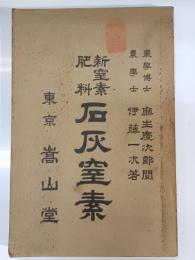 農學博士 麻生慶次郎閲
農學士 伊藤一次著
新窒素
肥料
石灰窒素
東京 嵩山堂